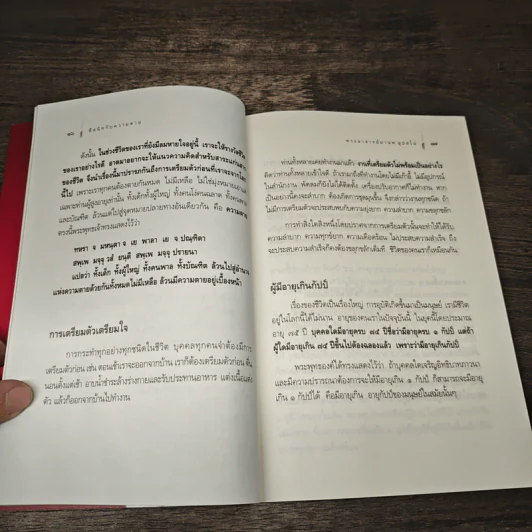 ๖๖ ชีวิตกับความตาย
ดังนั้น ในช่วงชีวิตของเราที่ยังมีลมหายใจอยู่นี้ เราจะให้รางวัลชีวิต
ของเราอย่างไรดี อาตมาอยากจะให้แนวความคิดสำหรับสาระแก่นสาร
ของชีวิต จึงนำเรื่องนี้มาปรารภกันถึงการเตรียมตัวก่อนที่เราจะจากโลก
นี้ไป เพราะเราทุกคนต้องตายกันหมด ไม่มีเหลือ ไม่ใช่มุ่งหมายเอา
เฉพาะท่านผู้สูงอายุเท่านั้น ทั้งเด็กทั้งผู้ใหญ่ ทั้งคนโง่คนฉลาด ทั้งคนพาล
และบัณฑิต ล้วนแต่ไปสู่จุดหมายปลายทางอันเดียวกัน คือ ความตาย
ตรงนี้พระพุทธเจ้าทรงแสดงไว้ว่า
ทหรา จ มหนฺตา จ เย พาลา เย จ ปณฺฑิตา
สพฺเพ มจฺจุ วสํ ยนฺติ สพฺเพ มจฺจุ ปรายนา
แปลว่า ทั้งเด็ก ทั้งผู้ใหญ่ ทั้งคนพาล ทั้งบัณฑิต ล้วนไปสู่อำนาจ
แห่งความตายด้วยกันทั้งหมดไม่มีเหลือ ล้วนมีความตายอยู่เบื้องหน้า
การเตรียมตัวเตรียมใจ
การกระทำทุกอย่างทุกชนิดในชีวิต บุคคลทุกคนจำต้องมีการ
เตรียมตัวก่อน เช่น ตอนเช้าเราจะออกจากบ้าน เราก็ต้องเตรียมตัวก่อน ตื่น
นอนตั้งแต่เช้า อาบน้ำชำระล้างร่างกายและรับประทานอาหาร แต่งเนื้อแต่ง
ตัว แล้วก็ออกจากบ้านไปทำงาน
ท่านทั้งหลายเคยทำงานมาแล้ว งานที่เตรียมตัวไม่พร้อมเป็นอย่างไร
คิดว่าท่านทั้งหลายเข้าใจดี ถ้าเรามาทำงานโดยไม่มีเก้าอี้ ไม่มีอุปกรณ์
ในสำนักงาน พัดลมก็ยังไม่ได้ติดตั้ง เครื่องปรับอากาศก็ไม่ทำงาน หาก
เป็นอย่างนี้คงจะลำบาก ต้องเกิดการชุลมุนขึ้น จึงกล่าวว่างานทุกชนิด ถ้า
ไม่มีการเตรียมตัวจะประสบพบกับความยุ่งยาก ความลำบาก ความขลุกขลัก
การทำสิ่งใดสิ่งหนึ่งโดยปราศจากการเตรียมตัวนั้นจะทำให้ได้รับ
ความลำบาก ความทุกข์ยาก ความเดือดร้อน ไม่ประสบความสำเร็จ ถึง
จะประสบความสำเร็จก็คงต้องขลุกขลักเต็มที ชีวิตของคนเราก็เหมือนกัน
ผู้มีอายุเกินกัปป์
เรื่องของชีวิตเป็นเรื่องใหญ่ การอุบัติเกิดขึ้นมาเป็นมนุษย์ เรามีชีวิต
อยู่ในโลกนี้ได้ไม่นาน อายุของคนเราในปัจจุบันนี้ ในยุคนี้โดยประมาณ
อายุ ๗๕ ปี บุคคลใดมีอายุครบ ๗๕ ปีชื่อว่ามีอายุครบ ๑ กัปป์ แต่ถ้า
ผู้ใดมีอายุเกิน ๗๕ ปีขึ้นไปต้องฉลองแล้ว เพราะว่ามีอายุเกินกัปป์
พระพุทธองค์ได้ทรงแสดงไว้ว่า ถ้าบุคคลใดเจริญอิทธิบาทภาวนา
และมีความปรารถนาต้องการจะให้มีอายุเกิน ๑ กัปป์ ก็สามารถจะมีอายุ
เกิน ๑ กัปป์ได้ คือมีอายุเกิน อายุกัปป์ของมนุษย์ในสมัยนั้นๆ